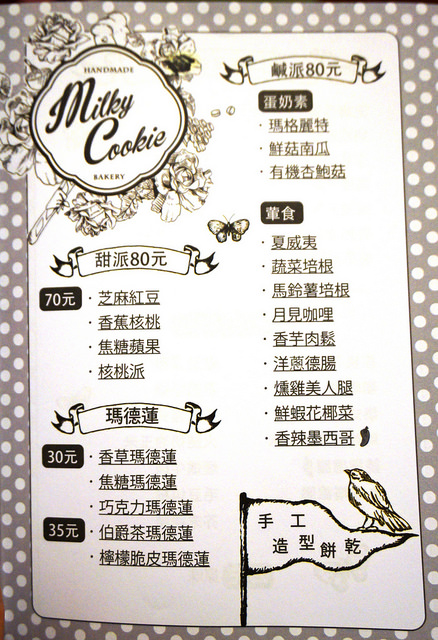 HANDMADE
Milky
Cookie
BAKERY
甜派80元
70元
·芝麻紅豆
·香蕉核桃
·焦糖蘋果
·核桃派
瑪德蓮
30元
·香草瑪德蓮
·焦糖瑪德蓮
·巧克力瑪德蓮
35元
·伯爵茶瑪德蓮
·檸檬脆皮瑪德蓮
鹹派80元
蛋奶素
·瑪格麗特
·鮮菇南瓜
·有機杏鮑菇
葷食
·夏威夷
·蔬菜培根
·馬鈴薯培根
·月見咖哩
·香芋肉鬆
·洋蔥德腸
·燻雞美人腿
·鮮蝦花椰菜
·香辣墨西哥
手工
造型餅乾